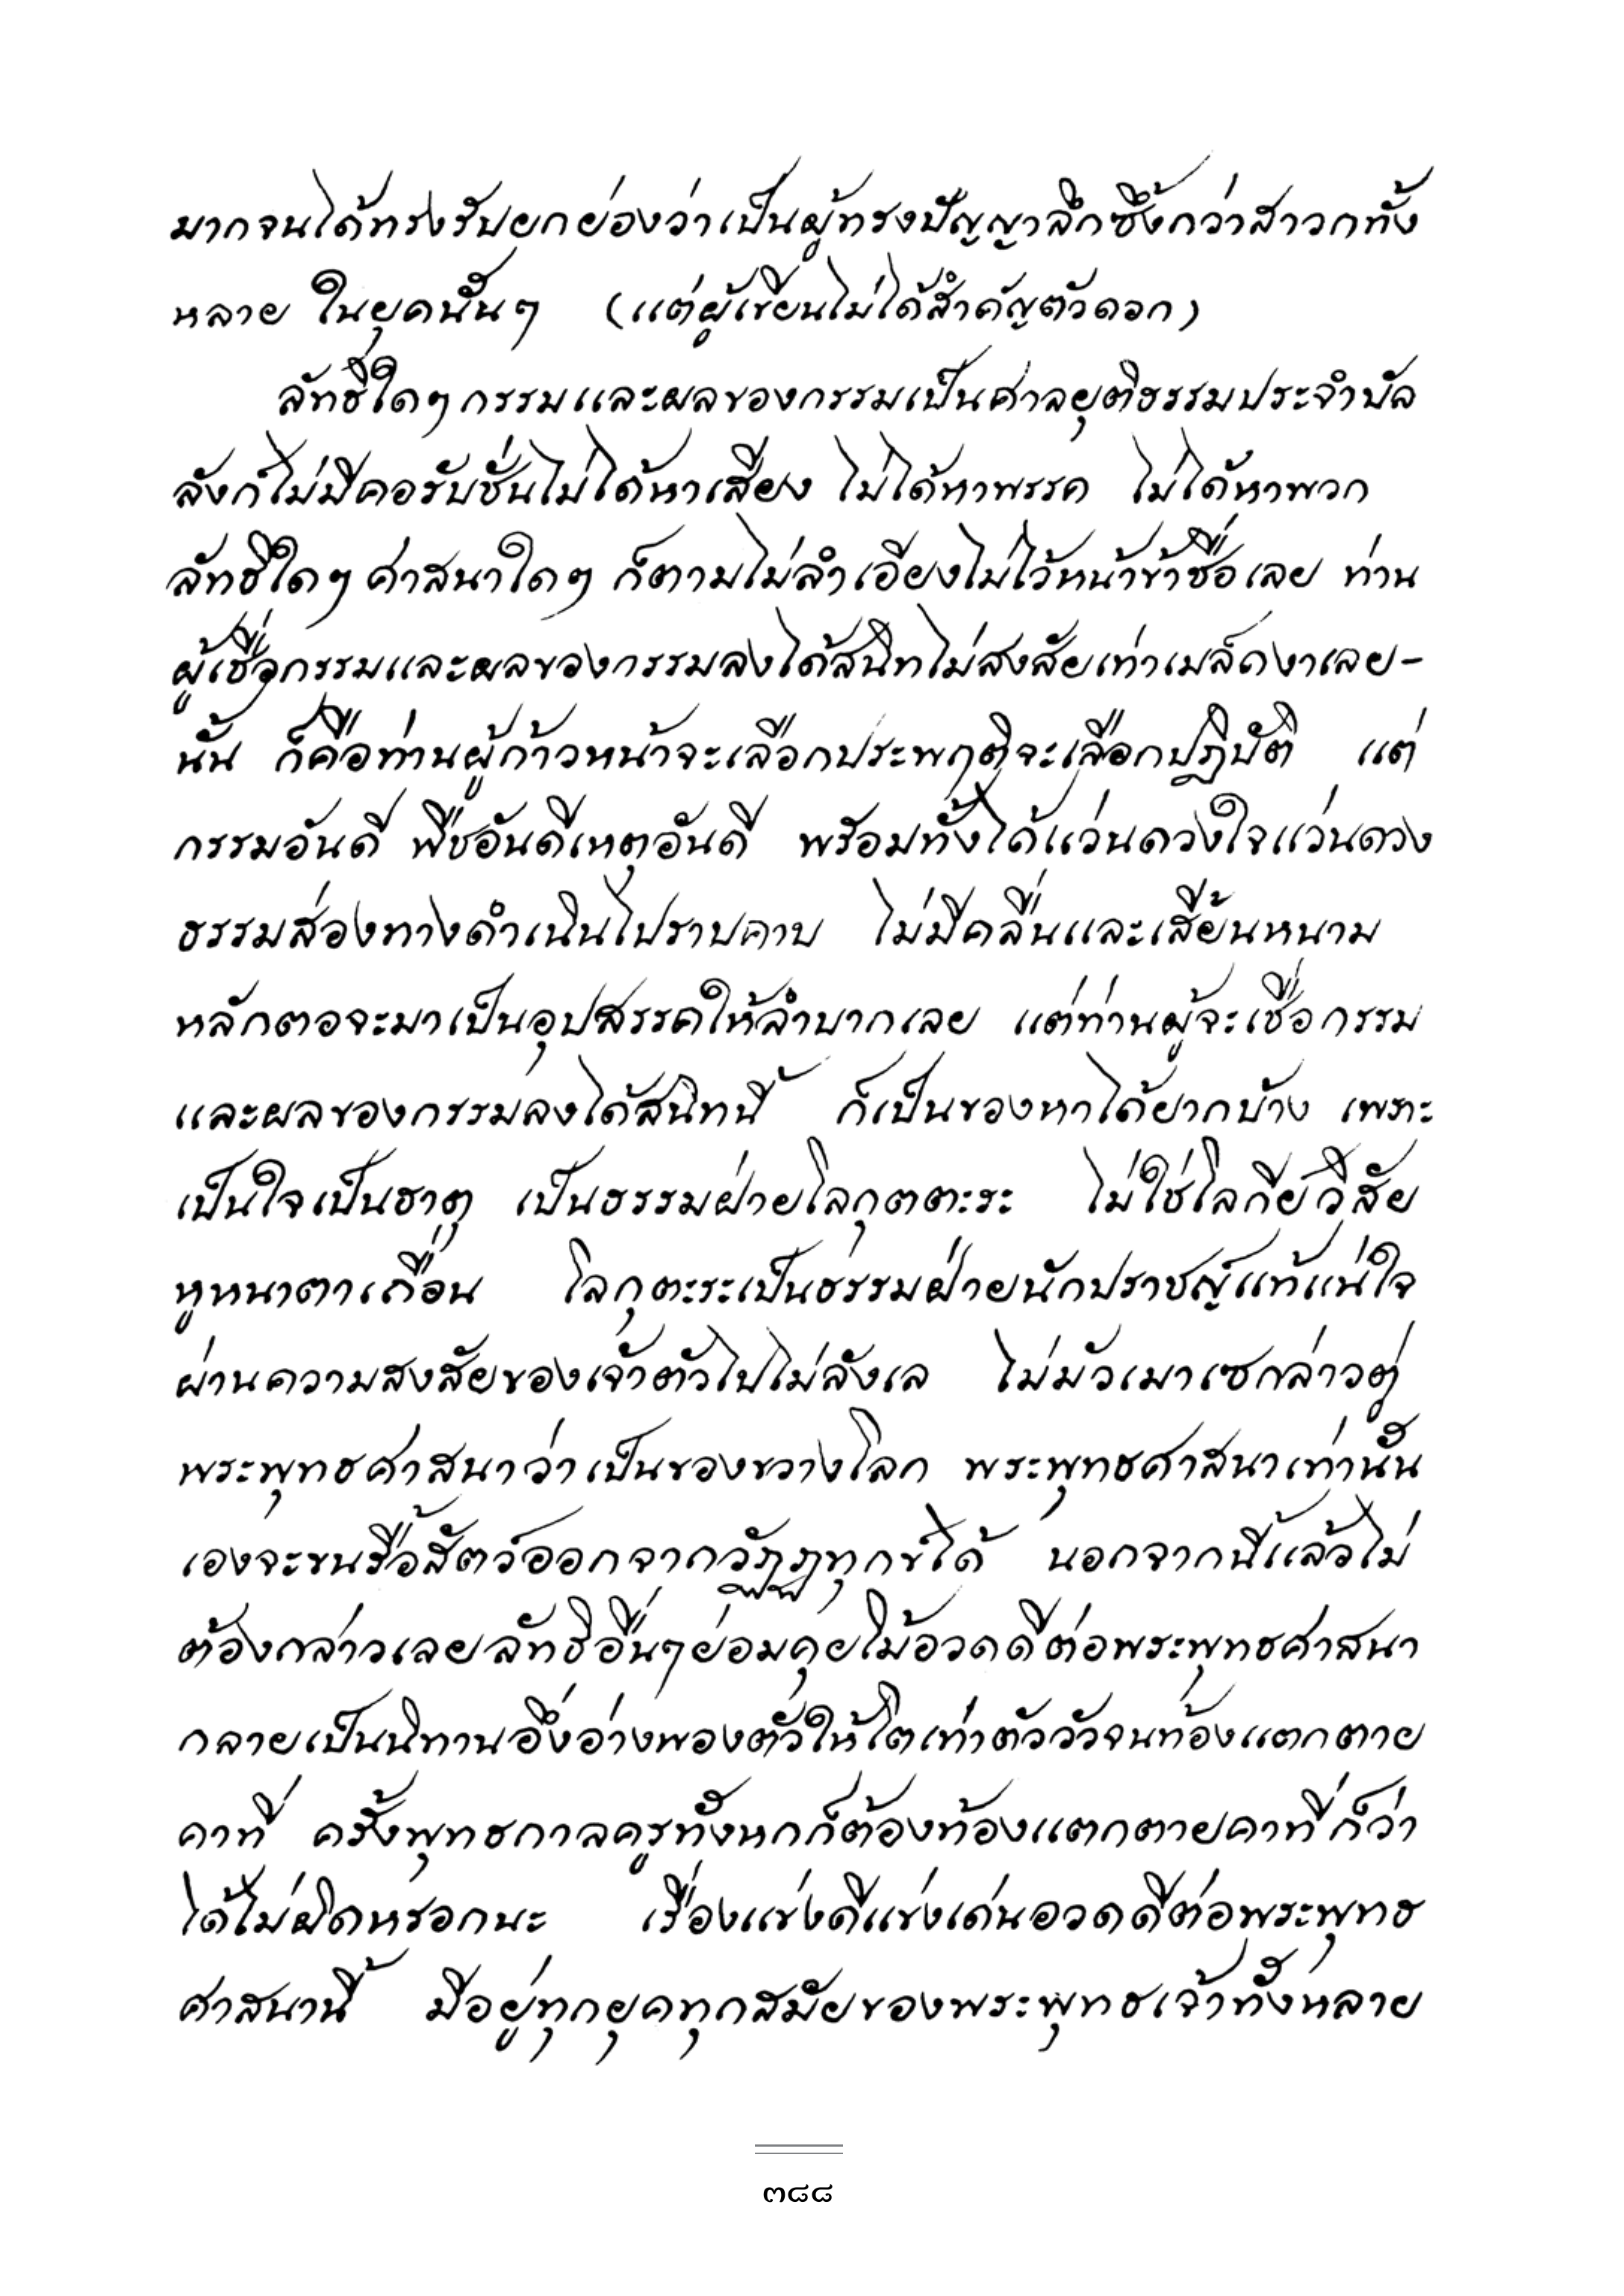 มากจนได้ทรงรับยกย่องว่าเป็นผู้ทรงปัญญาลึกซึ้งกว่าสาวกทั้ง
หลาย ในยุคนั้นๆ (แต่ผู้เขียนไม่ได้สำคัญตัวดอก)
ลัทธิใดๆ กรรมและผลของกรรมเป็นศาลยุติธรรมประจำบัล
ลังก์ไม่มีคอรับชั่นไม่ได้หาเสียง ไม่ได้หาพรรค ไม่ได้หาพวก
ลัทธิใดๆ ศาสนาใดๆ ก็ตามไม่ลำเอียงไม่ไว้หน้าข้าชื่อเลย ท่าน
ผู้เชื่อกรรมและผลของกรรมลงได้สนิทไม่สงสัยเท่าเมล็ดงาเลย-
นั้น ก็คือท่านผู้ก้าวหน้าจะเลือกประพฤติจะเลือกปฏิบัติ แต่
กรรมอันดี พืชอันดีเหตุอันดี พร้อมทั้งได้แว่นดวงใจแว่นดวง
ธรรมส่องทางดำเนินไปราบคาบ ไม่มีคลื่นและเสี้ยนหนาม
หลักตอจะมาเป็นอุปสรรคให้ลำบากเลย แต่ท่านผู้จะเชื่อกรรม
และผลของกรรมลงได้สนิทนี้ ก็เป็นของหาได้ยากบ้าง เพราะ
เป็นใจเป็นธาตุ เป็นธรรมฝ่ายโลกุตตะระ ไม่ใช่โลกีย์วิสัย
หูหนาตาเถื่อน โลกุตะระเป็นธรรมฝ่ายนักปราชญ์แท้แน่ใจ
ผ่านความสงสัยของเจ้าตัวไปไม่ลังเล ไม่มัวเมาเซกล่าวตู่
พระพุทธศาสนาว่าเป็นของขวางโลก พระพุทธศาสนาเท่านั้น
เองจะขนรื้อสัตว์ออกจากวัฏฏทุกข์ได้ นอกจากนี้แล้วไม่
ต้องกล่าวเลยลัทธิอื่นๆย่อมคุยโม้อวดดีต่อพระพุทธศาสนา
กลายเป็นนิทานอึ่งอ่างพองตัวให้โตเท่าตัววัวจนท้องแตกตาย
คาที่ ครั้งพุทธกาลครูทั้งหกก็ต้องท้องแตกตายคาที่ก็ว่า
ได้ไม่ผิดหรอกนะ เรื่องแข่งดีแข่งเด่นอวดดีต่อพระพุทธ
ศาสนานี้ มีอยู่ทุกยุคทุกสมัยของพระพุทธเจ้าทั้งหลาย
๓๘๘